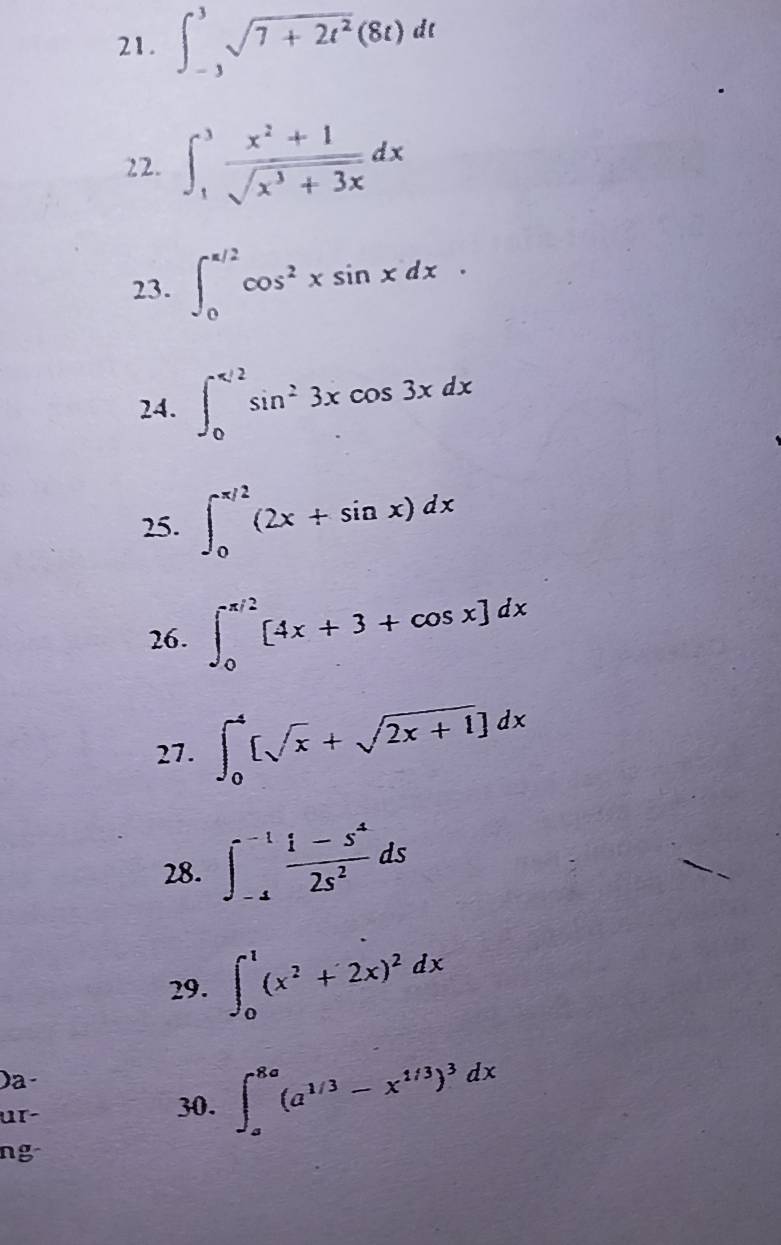 21. ∫_{-3}^{3} √(7 + 2t²) (8t) dt
22. ∫_{1}^{3} (x² + 1)/√(x³ + 3x) dx
23. ∫_{0}^{π/2} cos² x sin x dx .
24. ∫_{0}^{π/2} sin² 3x cos 3x dx
25. ∫_{0}^{π/2} (2x + sin x) dx
26. ∫_{0}^{π/2} [4x + 3 + cos x] dx
27. ∫_{0}^{4} [√x + √(2x + 1)] dx
28. ∫_{-4}^{-1} (1 − s⁴)/(2s²) ds
29. ∫_{0}^{1} (x² + 2x)² dx
Da-
30. ∫_{a}^{8a} (a^{1/3} − x^{1/3})³ dx
ur-
ng-